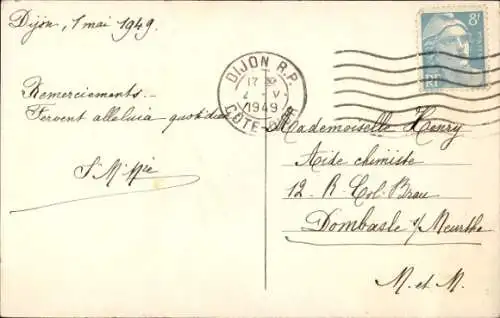 Dijon, 1 mai 1949.
Remerciements. -
Fervent alleluia quotidien
DIJON R.P.
17 30
2 - V
1949
CÔTE-D'OR
8F
RF
Mademoiselle Henry
Aide chimiste
12 R. Col. Brau
Dombasle s/ Meurthe
M. et M.